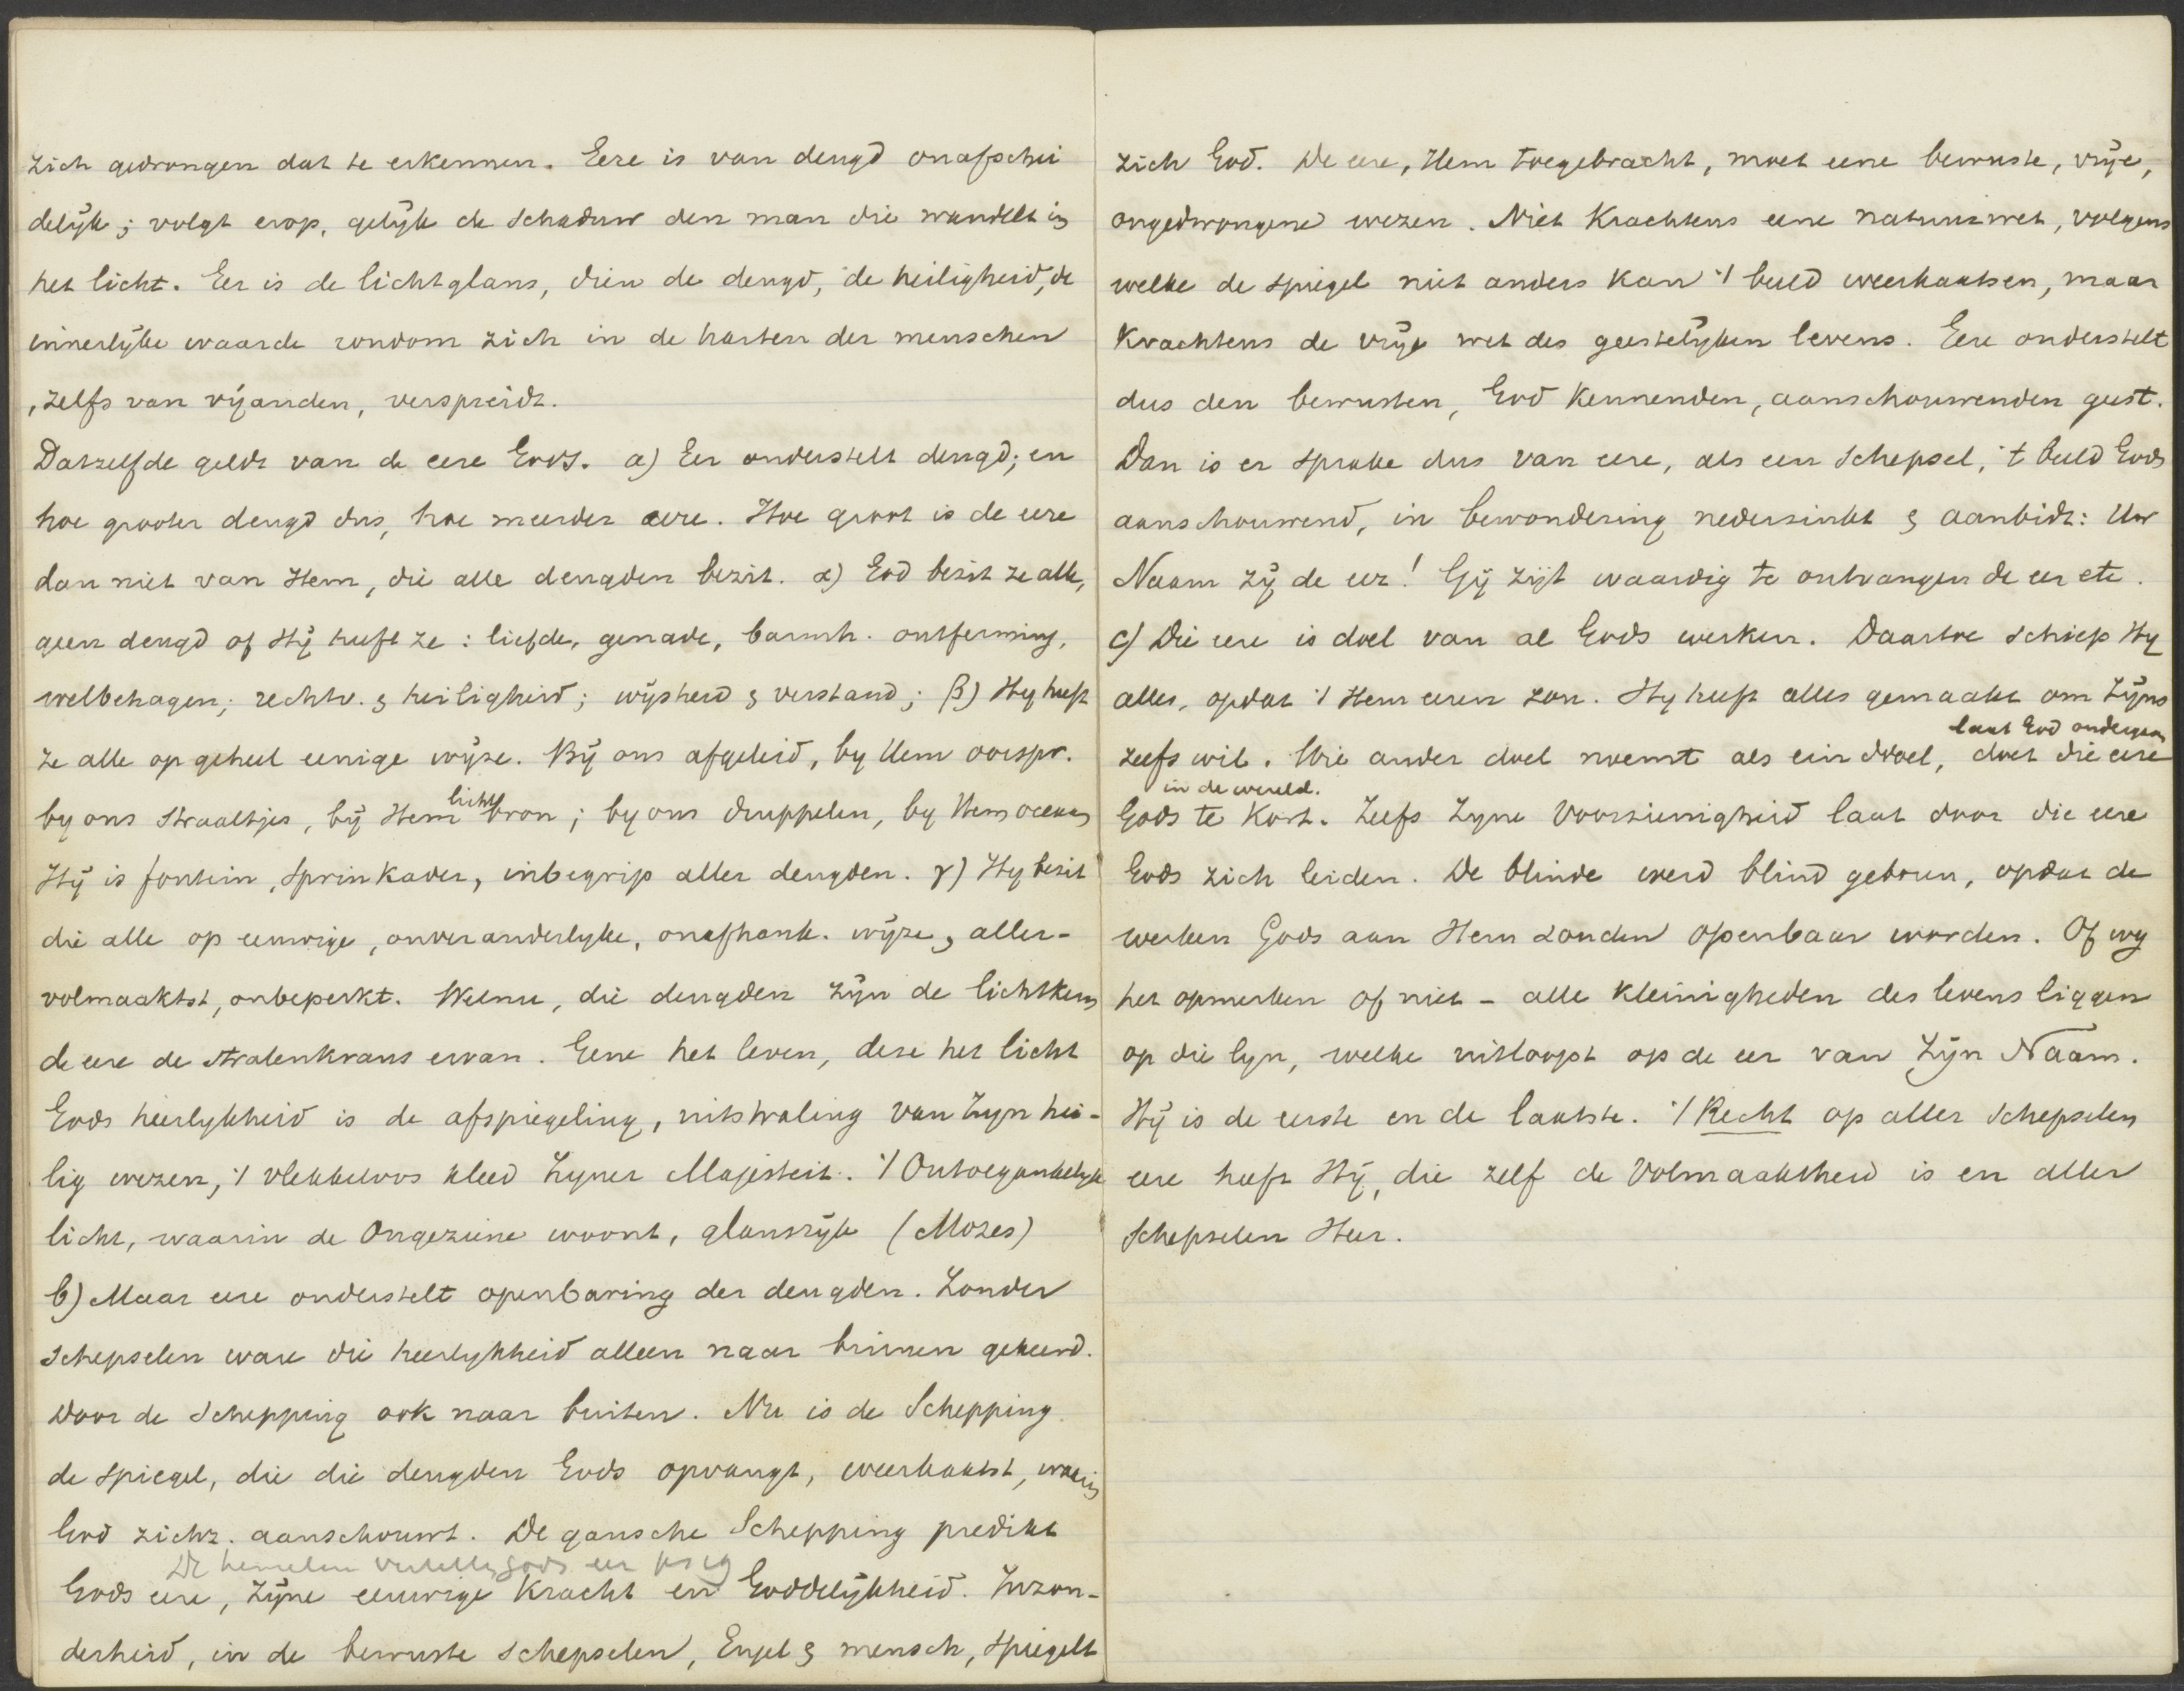 zich gedrongen dat te erkennen. Eere is van deugd onafschei
delijk; volgt erop, gelijk de schaduw den man die wandelt in
het licht. Eer is de lichtglans, dien de deugd, de heiligheid, de
innerlijke waarde rondom zich in de harten der menschen
, zelfs van vijanden, verspreidt.
Datzelfde geldt van de eere Gods. a) Eer onderstelt deugd; en
hoe grooter deugd dus, hoe meerder eere. Hoe groot is de eere
dan niet van Hem, die alle deugden bezit. α) God bezit ze alle,
geen deugd of Hij heeft ze: liefde, genade, barmh. ontferming,
welbehagen; rechtv. & heiligheid; wijsheid & verstand; β) Hy heeft
ze alle op geheel eenige wijze. Bij ons afgeleid, by Hem oorspr.
by ons straaltjes, bij Hem lichtbron; by ons druppelen, by Hem oceaan
Hij is fontein, Sprinkader, inbegrip aller deugden. γ) Hy bezit
die alle op eeuwige, onveranderlyke, onafhank. wijze, aller-
volmaaktst, onbeperkt. Welnu, die deugden zijn de lichtkern
de eere de stralenkrans ervan. Gene het leven, deze het licht
Gods heerlykheid is de afspiegeling, uitstraling van Zyn hei-
lig wezen, 't vlekkeloos kleed Zyner Majesteit. 't Ontoegankelijk
licht, waarin de Ongeziene woont, glansrijk (Mozes)
b) Maar eere onderstelt openbaring der deugden. Zonder
schepselen ware die heerlykheid alleen naar binnen gekeerd.
Door de Schepping ook naar buiten. Nu is de Schepping
de spiegel, die die deugden Gods opvangt, weerkaatst, waarin
God zichz. aanschouwt. De gansche Schepping predikt
De hemelen vertellen Gods eer ps 19
Gods eere, Zijne eeuwige Kracht en Goddelijkheid. Inzon-
derheid, in de bewuste schepselen, Engel & mensch, spiegelt
zich God. De eere, Hem toegebracht, moet eene bewuste, vrije,
ongedwongene wezen. Niet Krachtens eene natuurwet, volgens
welke de spiegel niet anders kan 't beeld weerkaatsen, maar
Krachtens de vrije wet des geestelijken levens. Eere onderstelt
dus den bewusten, God Kennenden, aanschouwenden geest.
Dan is er sprake dus van eere, als een schepsel, 't beeld Gods
aanschouwend, in bewondering nederzinkt & aanbidt: Uw
Naam zij de eer! Gij zijt waardig te ontvangen de eer etc.
c) Die eere is doel van al Gods werken. Daartoe schiep Hy
alles, opdat 't Hem eeren zou. Hy heeft alles gemaakt om Zijns
laat God ondergaan
zelfs wil. Wie ander doel noemt als einddoel, doet die eere
in de wereld.
Gods te Kort. Zelfs Zyne Voorzienigheid laat door die eere
Gods zich leiden. De blinde werd blind geboren, opdat de
werken Gods aan Hem zouden openbaar worden. Of wy
het opmerken of niet - alle kleinigheden des levens liggen
op die lyn, welke uitloopt op de eer van Zijn Naam.
Hij is de eerste en de laatste. 't Recht op aller schepselen
eere heeft Hij, die zelf de Volmaaktheid is en aller
schepselen Heer.